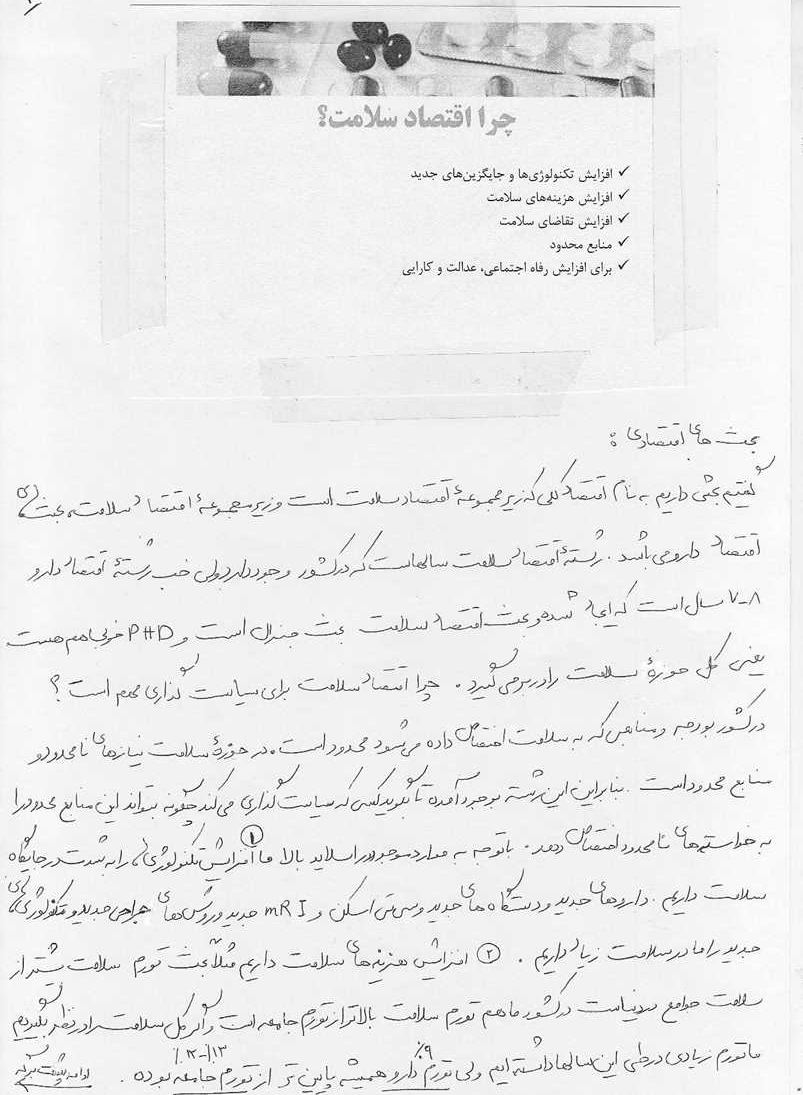 چرا اقتصاد سلامت؟
✓ افزایش تکنولوژی‌ها و جایگزین‌های جدید
✓ افزایش هزینه‌های سلامت
✓ افزایش تقاضای سلامت
✓ منابع محدود
✓ برای افزایش رفاه اجتماعی، عدالت و کارایی
بحث های اقتصادی :
گفتیم بحثی داریم به نام اقتصاد کلی که زیر مجموعهٔ اقتصاد سلامت است و زیر مجموعهٔ اقتصاد سلامت، بحث های
اقتصاد دارو می باشد. رشتهٔ اقتصاد سلامت سالهاست که در کشور وجود دارد ولی خب رشتهٔ اقتصاد دارو
۷-۸ سال است که ایجاد شده و بحث اقتصاد سلامت بحث جنرال است و PHD هم هست
یعنی کل حوزهٔ سلامت را در بر می گیرد. چرا اقتصاد سلامت برای سیاست گذاری مهم است ؟
در کشور بودجه و منابعی که به سلامت اختصاص داده می شود محدود است. در حوزهٔ سلامت نیازهای نامحدود و
منابع محدود است. بنابراین این رشته بوجود آمده تا بگوید کسی که سیاست گذاری می کند چگونه بتواند این منابع محدود را
به خواسته های نامحدود اختصاص دهد. با توجه به موارد موجود در اسلاید بالا ما ① افزایش تکنولوژی ها را به شدت در جایگاه
سلامت داریم. داروهای جدید و دستگاه های جدید و سی تی اسکن و MRI جدید و روش های جراحی جدید و تکنولوژی های
جدید را ما در سلامت زیاد داریم. ② افزایش هزینه های سلامت داریم مثلاً بحث تورم سلامت بیشتر از
سلامت جوامع دنیاست در کشور ما هم تورم سلامت بالاتر از تورم جامعه است و اگر کل سلامت را در نظر بگیریم
ما تورم زیادی در طی این سالها داشته ایم ولی تورم دارو ٪۹ همیشه پایین تر از تورم جامعه ٪۱۲-٪۱۳ بوده.
ادامه پشت برگه